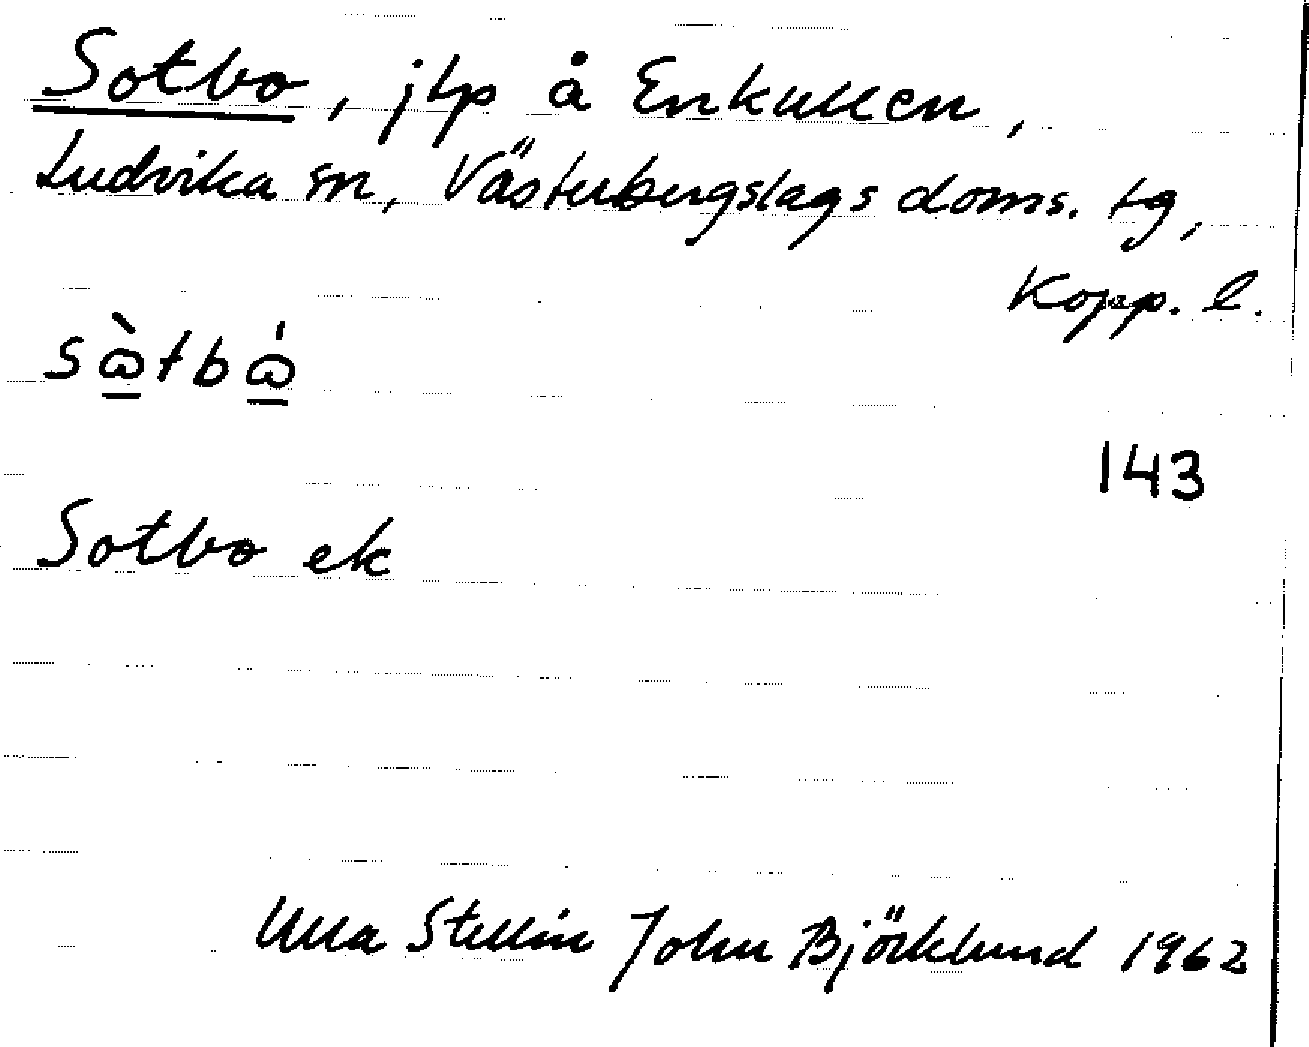 Sotbo, jlp å Enkullen,
Ludvika sn, Västerbergslags doms. tg,
Kopp. l.
sὼ̱tbώ̱
143
Sotbo ek
Ulla Stellin John Björklund 1962